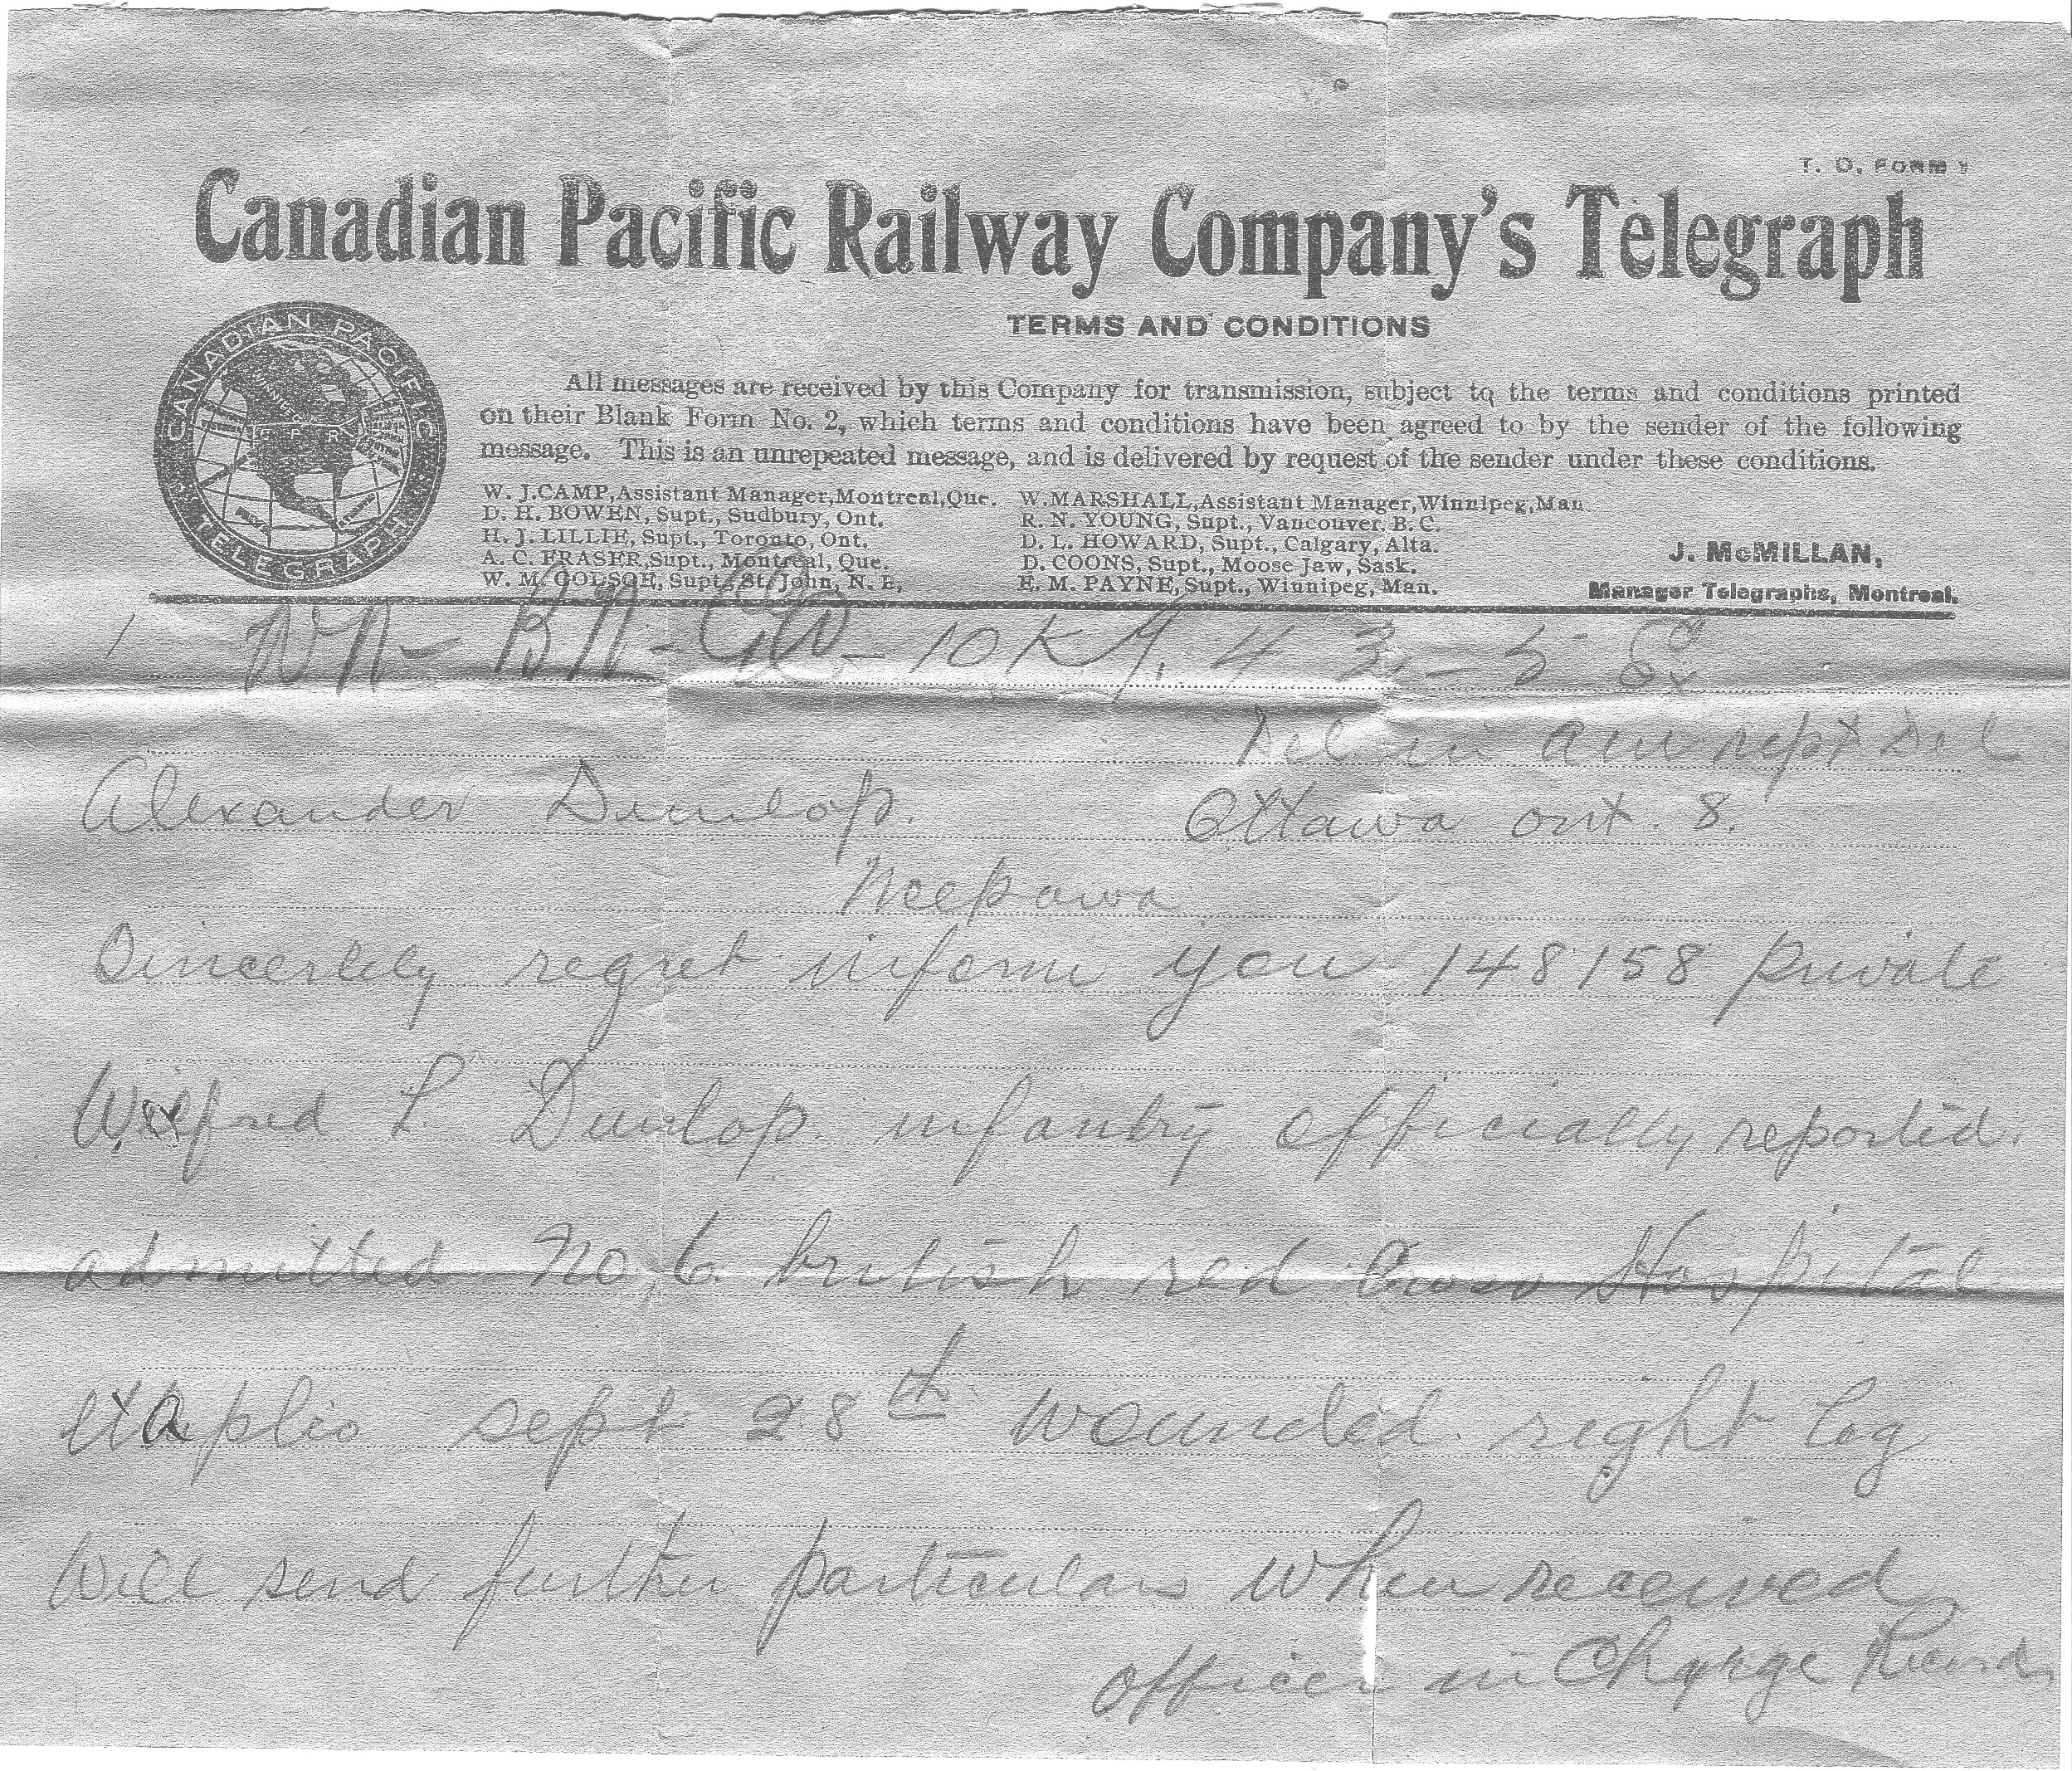 T. D. FORM
Canadian Pacific Railway Company's Telegraph
TERMS AND CONDITIONS
CANADIAN PACIFIC
TELEGRAPH
All messages are received by this Company for transmission, subject to the terms and conditions printed
on their Blank Form No. 2, which terms and conditions have been agreed to by the sender of the following
message. This is an unrepeated message, and is delivered by request of the sender under these conditions.
W. J. CAMP, Assistant Manager, Montreal, Que.
D. H. BOWEN, Supt., Sudbury, Ont.
H. J. LILLIE, Supt., Toronto, Ont.
A. C. FRASER, Supt., Montreal, Que.
W. M. GODSOE, Supt., St. John, N. B.
W. MARSHALL, Assistant Manager, Winnipeg, Man.
R. N. YOUNG, Supt., Vancouver, B. C.
D. L. HOWARD, Supt., Calgary, Alta.
D. COONS, Supt., Moose Jaw, Sask.
E. M. PAYNE, Supt., Winnipeg, Man.
J. McMILLAN,
Manager Telegraphs, Montreal.
Del in am rept Del
Alexander Dunlop. Ottawa ont. 8.
Neepawa
Sincerlely regret inform you 148158 private
Wilfred L. Dunlop. infantry officially reported.
admitted No. 6 british red Cross Hospital
etaplio sept 28th wounded. right leg
Will send further particulars when received
officer in Charge